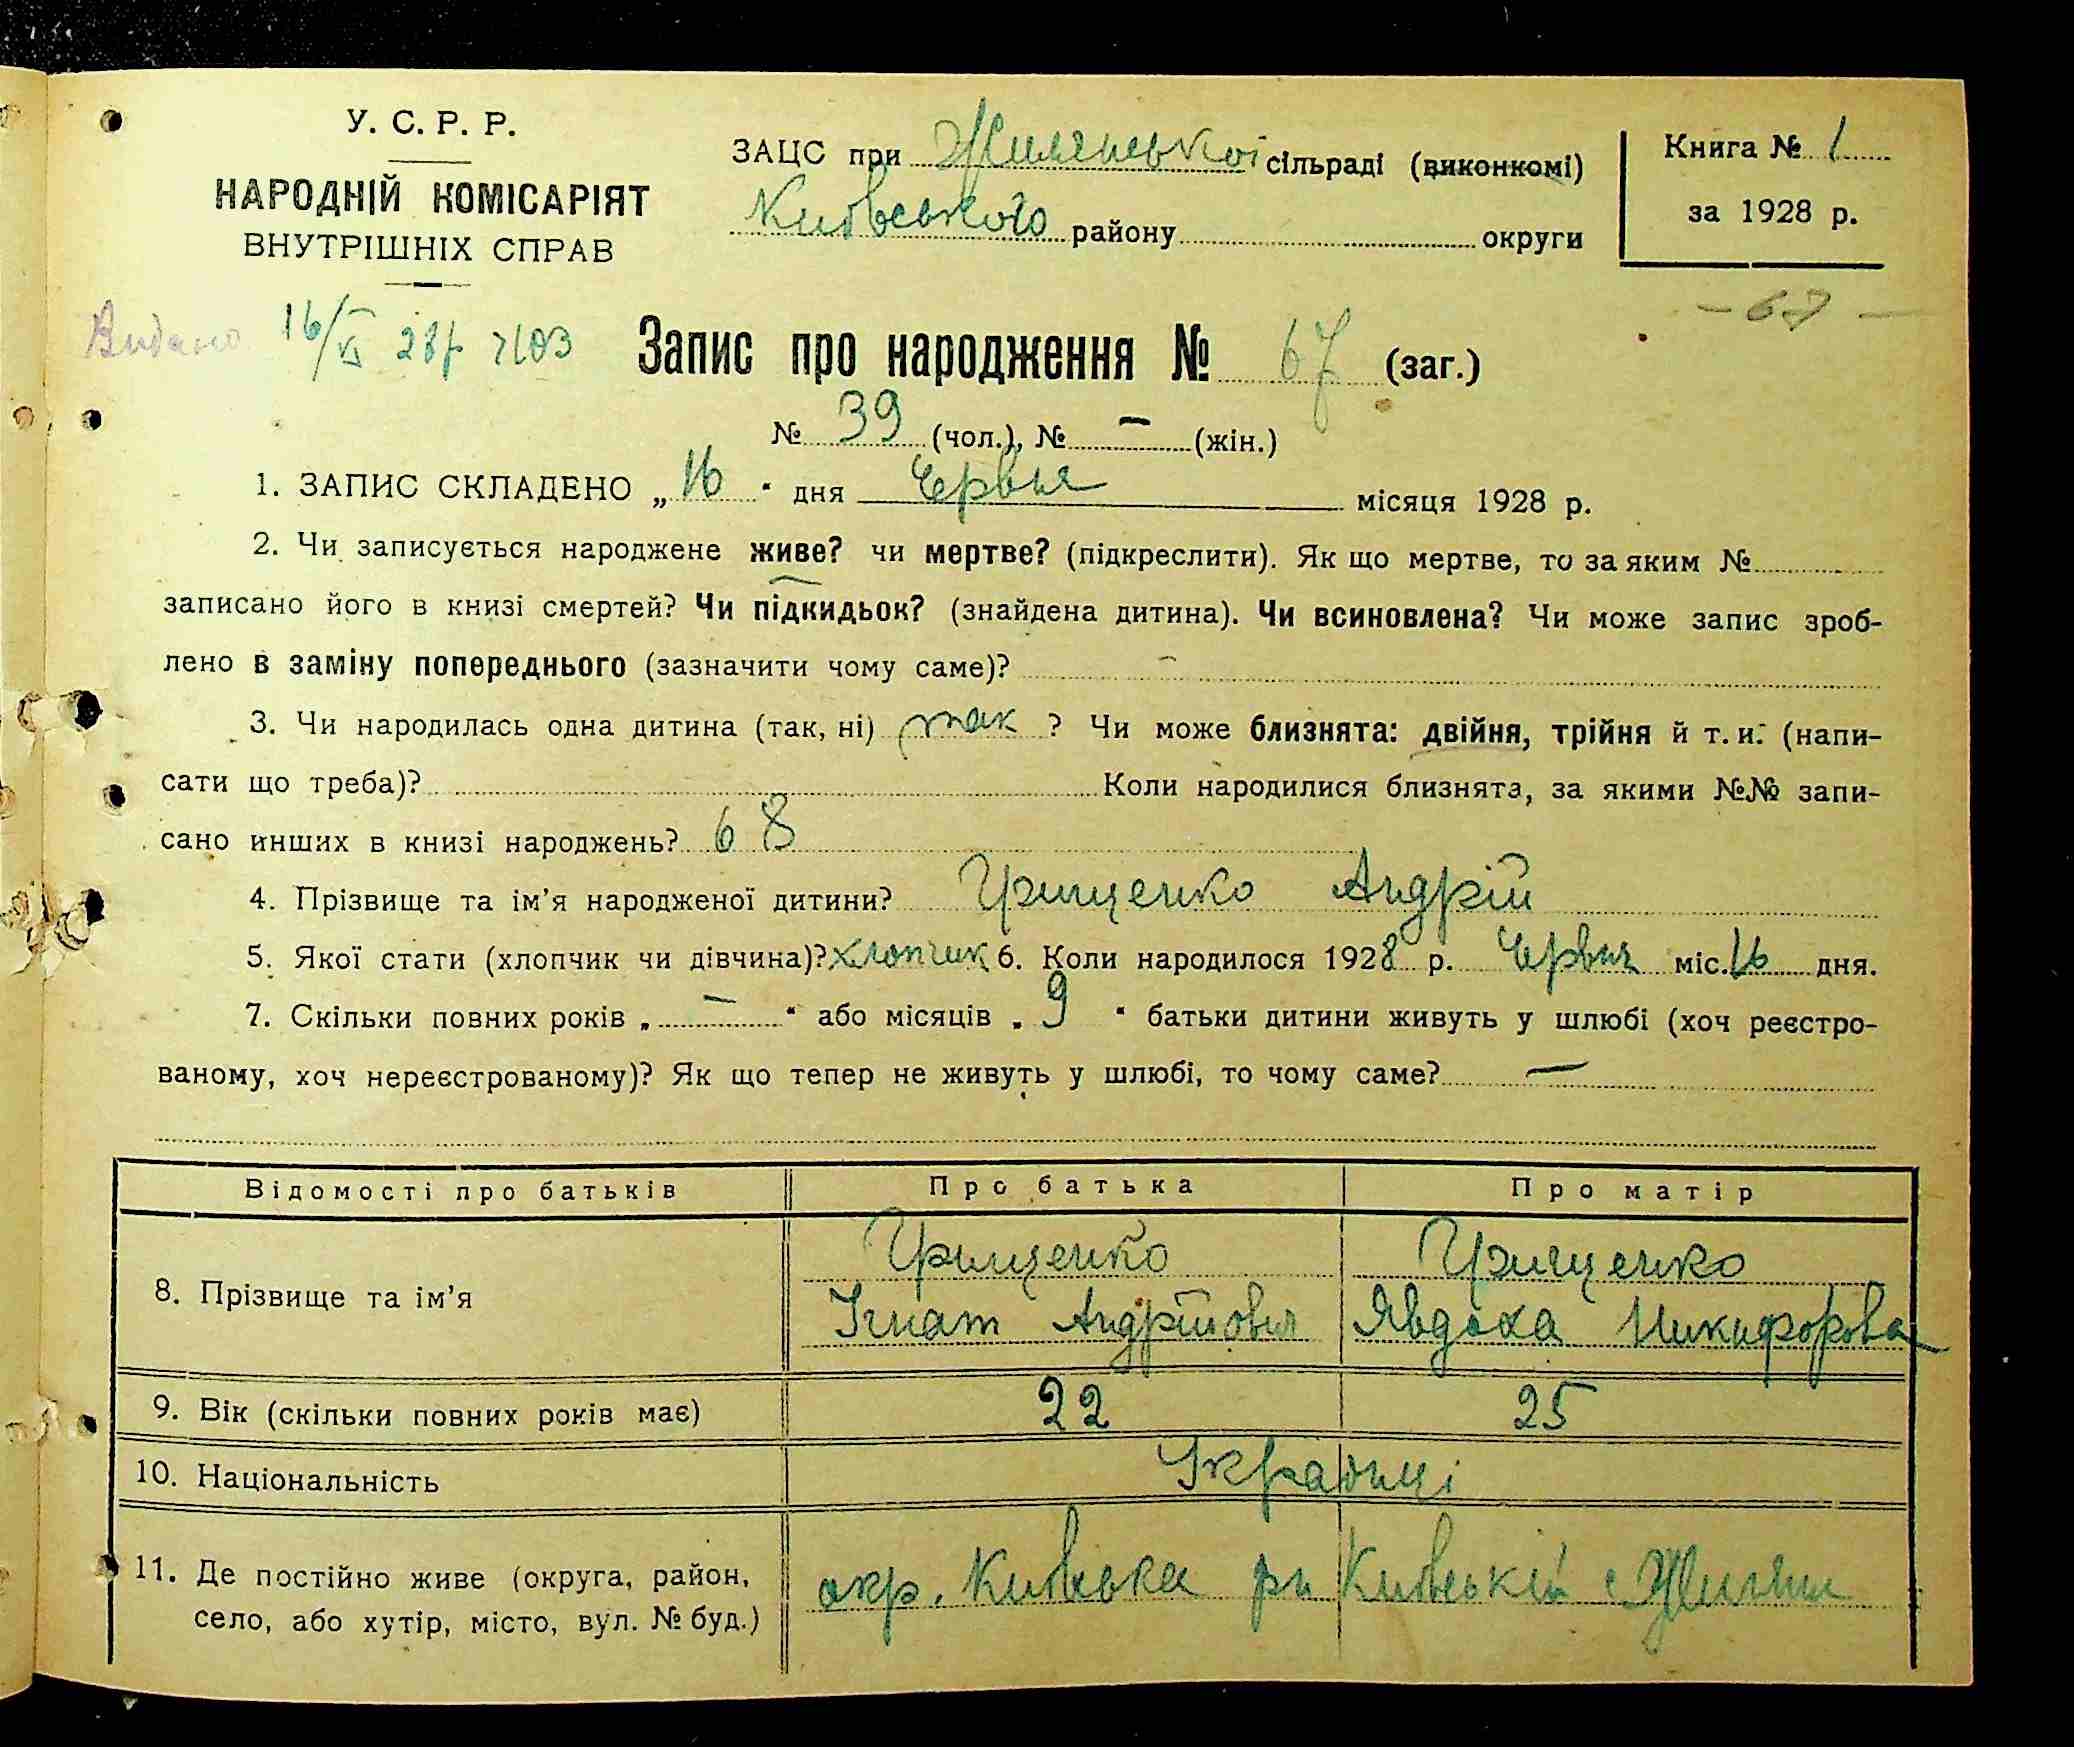 У. С. Р. Р.
НАРОДНІЙ КОМІСАРІЯТ
ВНУТРІШНІХ СПРАВ
ЗАЦС при Жилянської сільраді (виконкомі)
Київського району округи
Книга № 1
за 1928 р.
- 67 -
Видано 16/VI 28р 7103
Запис про народження № 67 (заг.)
№ 39 (чол.), № – (жін.)
1. ЗАПИС СКЛАДЕНО „16“ дня Червня місяця 1928 р.
2. Чи записується народжене живе? чи мертве? (підкреслити). Як що мертве, то за яким №
записано його в книзі смертей? Чи підкидьок? (знайдена дитина). Чи всиновлена? Чи може запис зроб-
лено в заміну попереднього (зазначити чому саме)? –
3. Чи народилась одна дитина (так, ні) так ? Чи може близнята: двійня, трійня й т. и. (напи-
сати що треба)? Коли народилися близнята, за якими №№ запи-
сано инших в книзі народжень? 68
4. Прізвище та ім’я народженої дитини? Грищенко Андрій
5. Якої стати (хлопчик чи дівчина)? хлопчик 6. Коли народилося 1928 р. Червня міс. 16 дня.
7. Скільки повних років „ – “ або місяців „ 9 “ батьки дитини живуть у шлюбі (хоч реєстро-
ваному, хоч нереєстрованому)? Як що тепер не живуть у шлюбі, то чому саме? –
Відомості про батьків Про батька Про матір
8. Прізвище та ім’я Грищенко Грищенко
Ігнат Андрійович Явдоха Никифорова
9. Вік (скільки повних років має) 22 25
10. Національність Українці
11. Де постійно живе (округа, район, окр. Київська рн Київський с Жиляни
село, або хутір, місто, вул. № буд.)